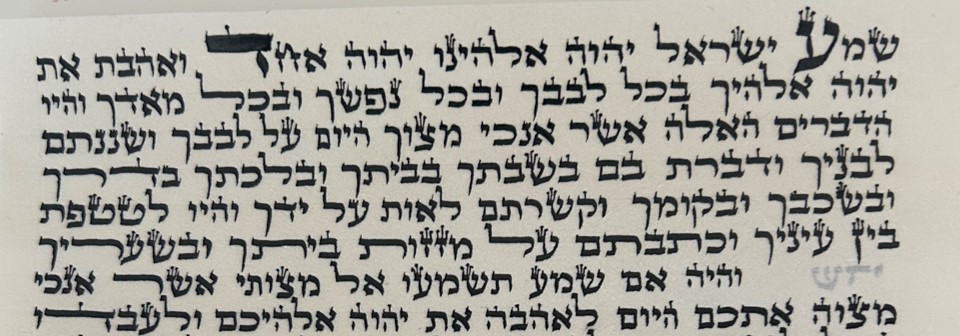 שמע ישראל יהוה אלהינו יהוה אחד ואהבת את
יהוה אלהיך בכל לבבך ובכל נפשך ובכל מאדך והיו
הדברים האלה אשר אנכי מצוך היום על לבבך ושננתם
לבניך ודברת בם בשבתך בביתך ובלכתך בדרך
ובשכבך ובקומך וקשרתם לאות על ידך והיו לטטפת
בין עיניך וכתבתם על מזזות ביתך ובשעריך
והיה אם שמע תשמעו אל מצותי אשר אנכי
מצוה אתכם היום לאהבה את יהוה אלהיכם ולעבדו